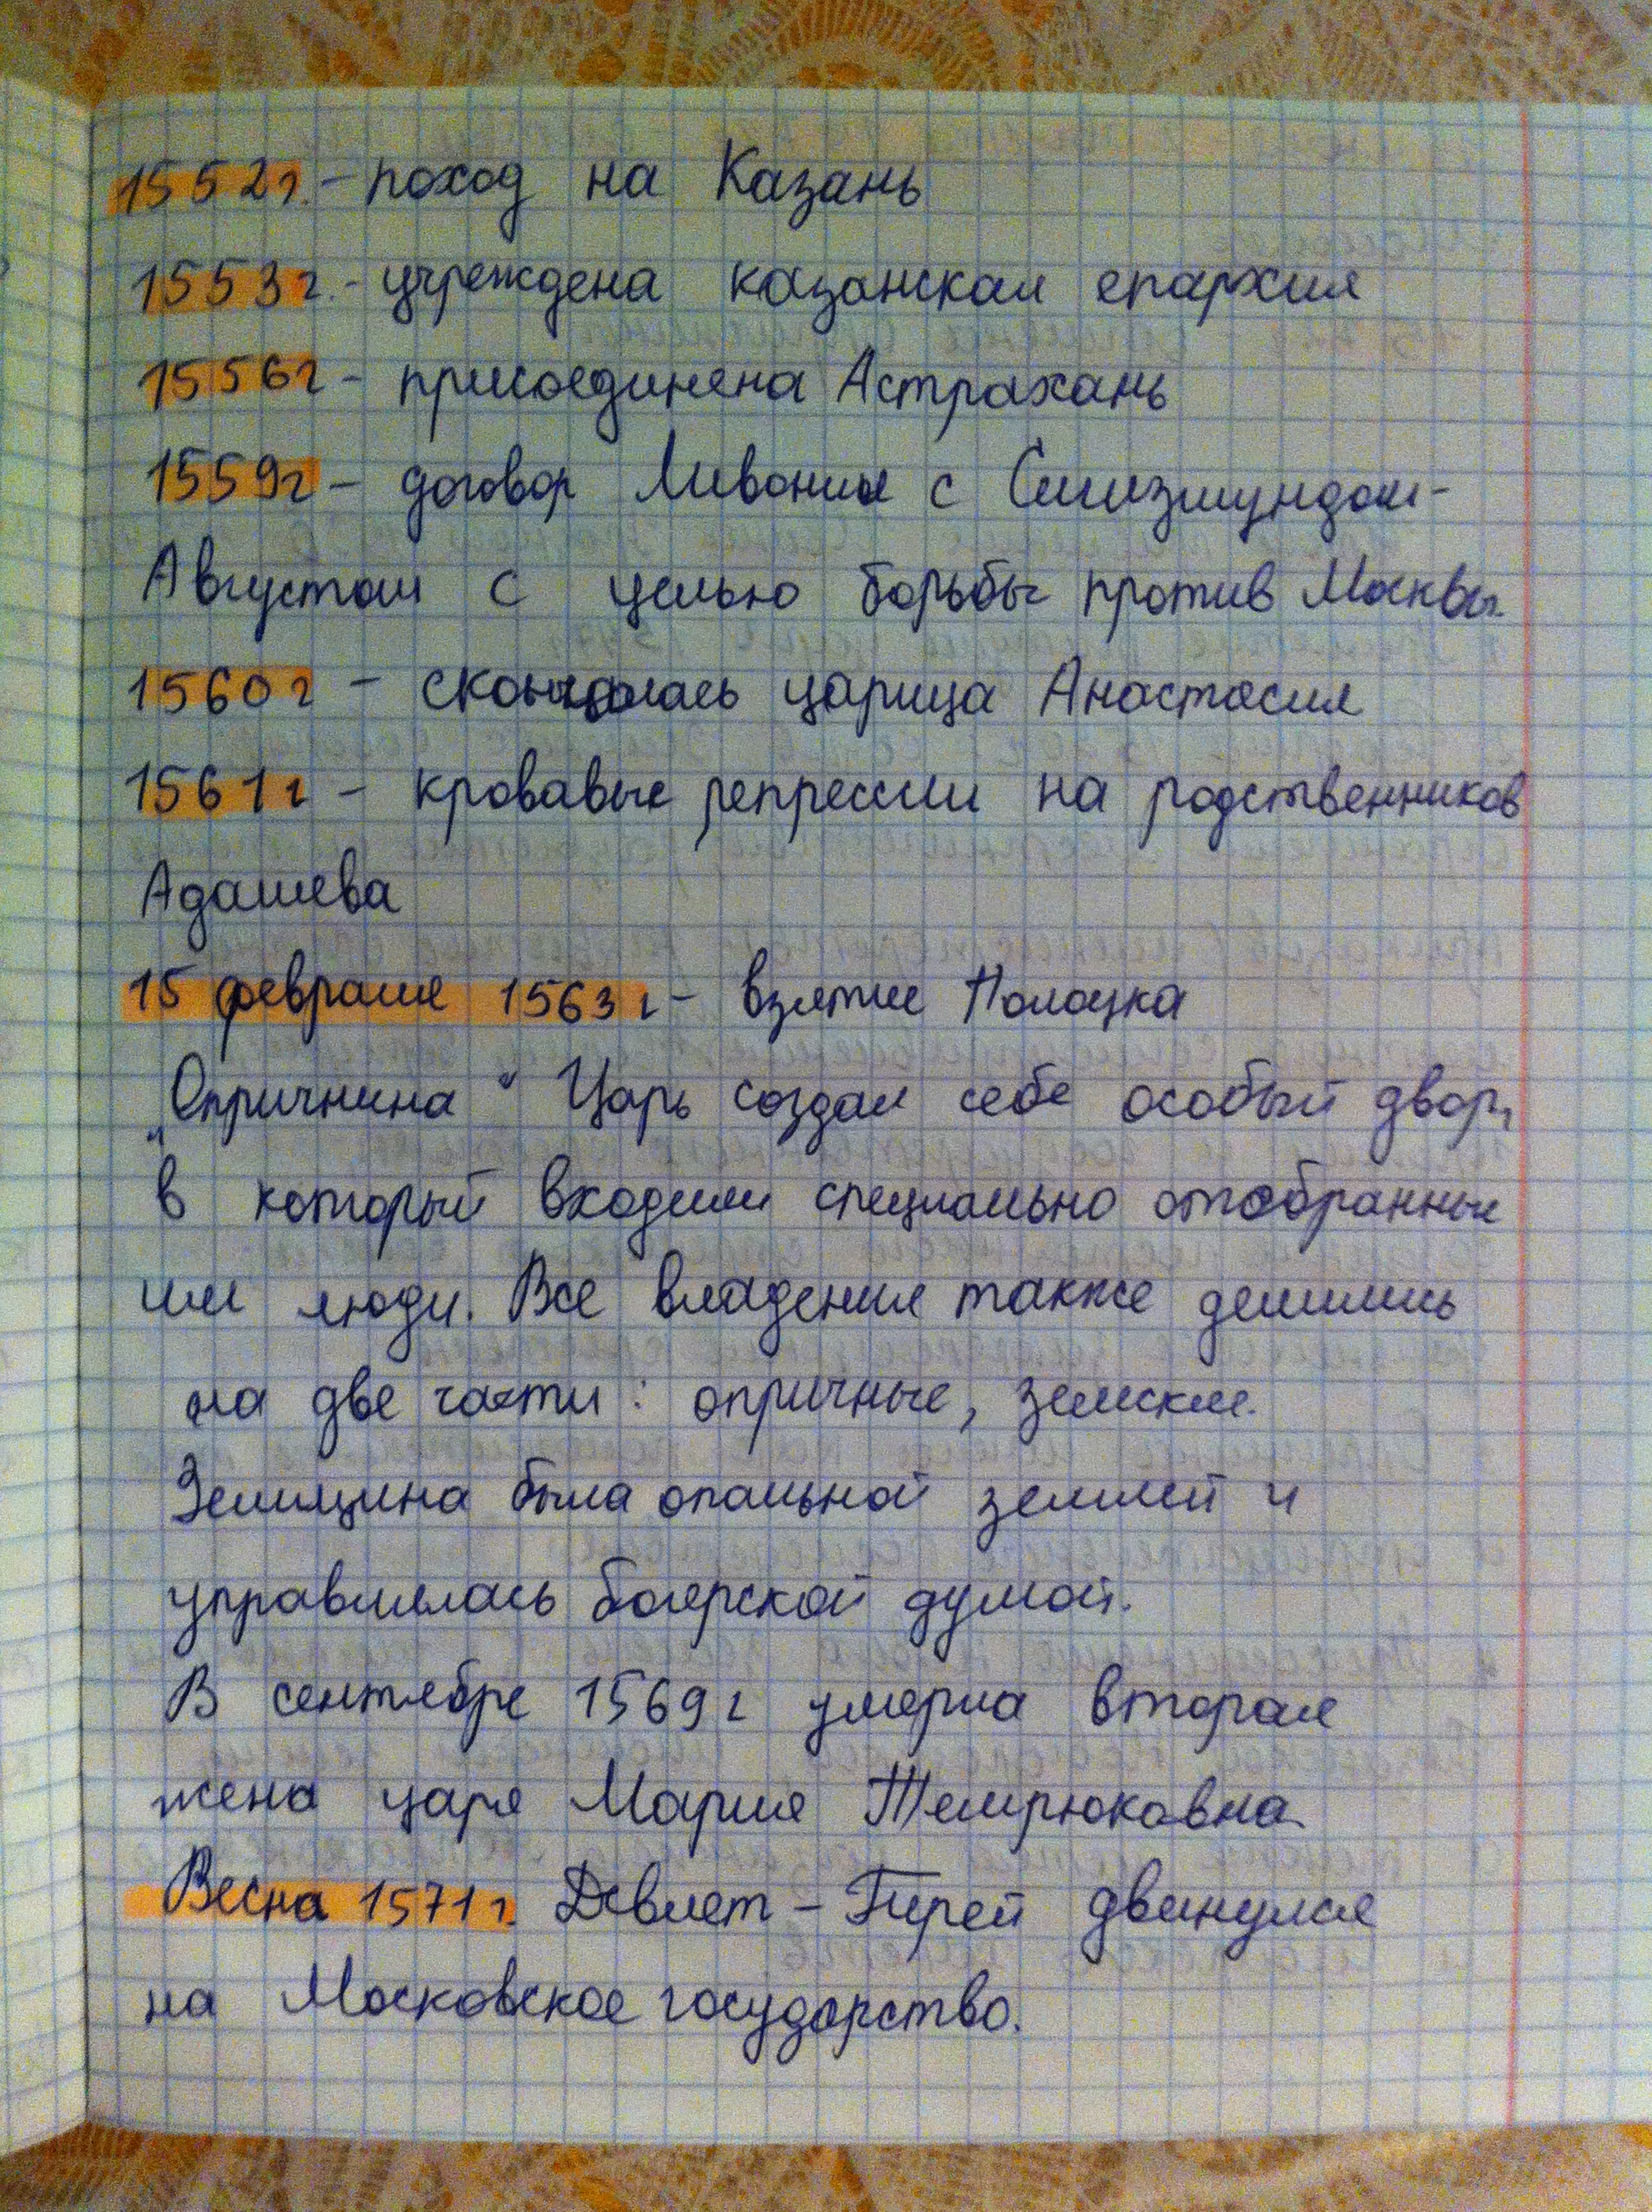 1552г. - поход на Казань
1553г. - учреждена казанская епархия
1556г - присоединена Астрахань
1559г - договор Ливонии с Сигизмундом-
Августом с целью борьбы против Москвы.
1560г - скончалась царица Анастасия
1561г - кровавые репрессии на родственников
Адашева
15 февраля 1563г - взятие Полоцка
„Опричнина“ Царь создал себе особый двор,
в который входили специально отобранные
им люди. Все владения также делились
на две части: опричные, земские.
Земщина была опальной землей и
управлялась боярской думой.
В сентябре 1569г умерла вторая
жена царя Мария Темрюковна.
Весна 1571г. Девлет-Гирей двинулся
на Московское государство.